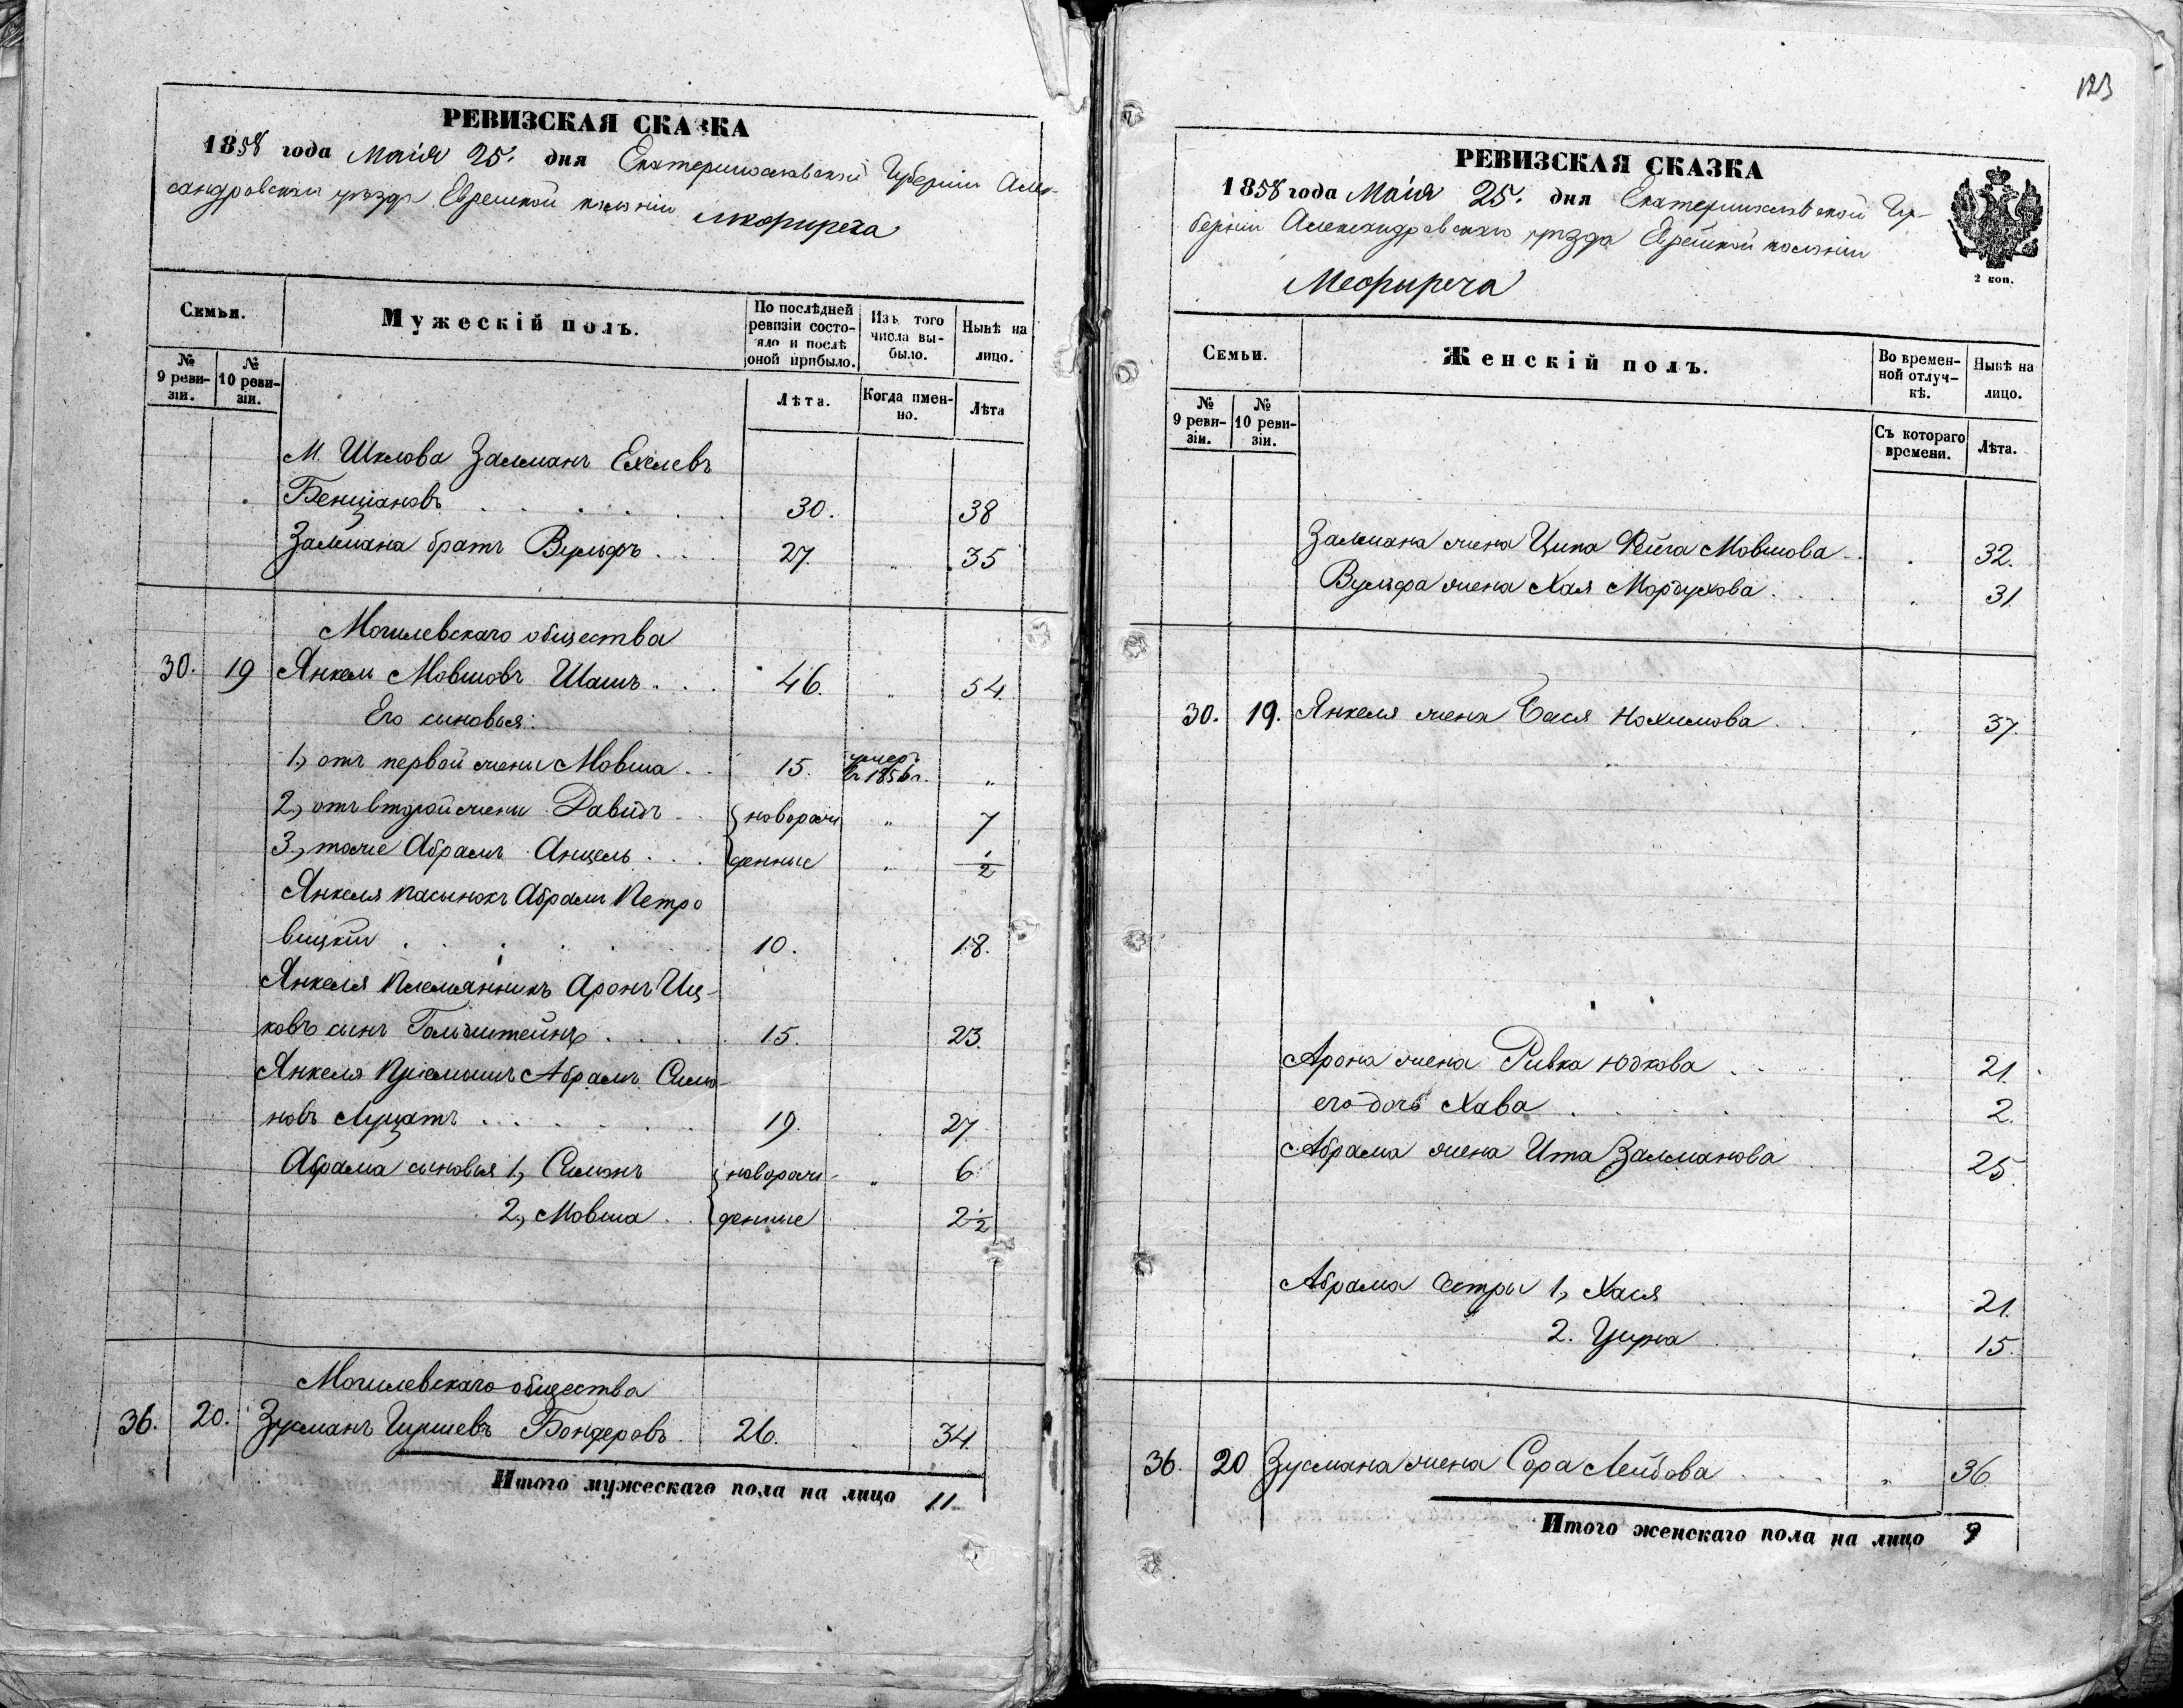 РЕВИЗСКАЯ СКАЗКА
1858 года Маія 25. дня Екатеринославской Губерніи Алек-
сандровскаго уѣзда Еврейской колоніи Межиреча
Семьи.
Мужескій полъ.
По послѣдней ревизіи состояло и послѣ оной прибыло.
Изъ того числа выбыло.
Нынѣ на лицо.
№ 9 ревизіи.
№ 10 ревизіи.
Лѣта.
Когда именно.
Лѣта
М. Шклова Залманъ
Бенціановъ 30. 38
Залмана братъ Вульфъ 27. 35
Могилевскаго общества
30. 19 Янкель Мовшовъ 46. 54.
Его сыновья:
1, отъ первой жены Мовша 15. умеръ въ 1856 г. "
2, отъ второй жены Давидъ новорож " 7
3, тоже Абрамъ Анцель денные 1/2
Янкеля пасынокъ Абрамъ Петро
вицкій 10. 18.
Янкеля племянникъ Аронъ Иц-
ковъ сынъ Гольдштейнъ 15. 23.
Янкеля пріемышъ Абрамъ Симо-
новъ 19. 27.
Абрама сыновья 1, Симонъ новорож- " 6
2, Мовша денные 2 1/2
Могилевскаго общества
36. 20. Зусманъ Гиршевъ Бондеровъ 26. 34.
Итого мужескаго пола на лицо 11
123
РЕВИЗСКАЯ СКАЗКА
1858 года Маія 25. дня Екатеринославской Гу-
берніи Александровскаго уѣзда Еврейской колоніи
Межиреча
2 коп.
Семьи.
Женскій полъ.
Во временной отлучкѣ.
Нынѣ на лицо.
№ 9 ревизіи.
№ 10 ревизіи.
Съ котораго времени.
Лѣта.
Залмана жена Ципа Фейга Мовшова 32.
Вульфа жена Хая Мордухова 31.
30. 19. Янкеля жена Бася Нохимова 37.
Арона жена Ривка Юдкова 21.
его дочь Хава 2.
Абрама жена Ита Залманова 25.
Абрама сестры 1, Хася 21.
2. 15.
36. 20 Зусмана жена Сора Лейбова " 36.
Итого женскаго пола на лицо 9